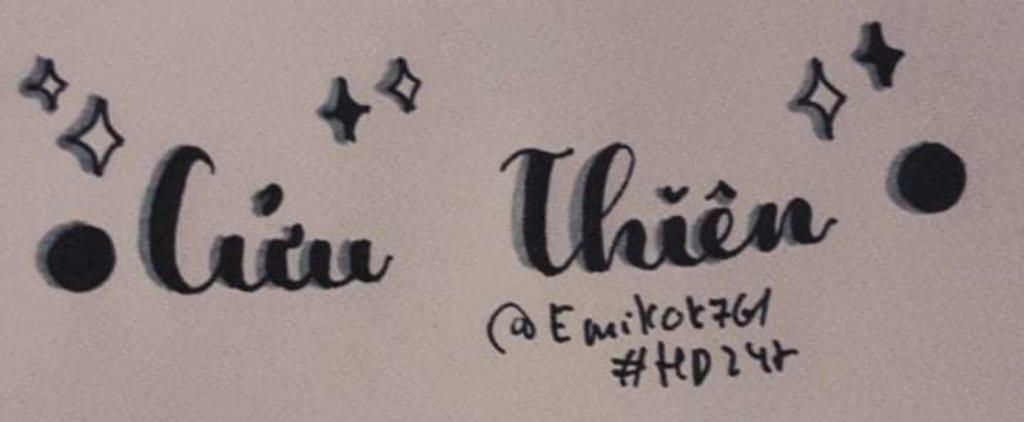 Cứu Thiên
@Emikok761
#HD247